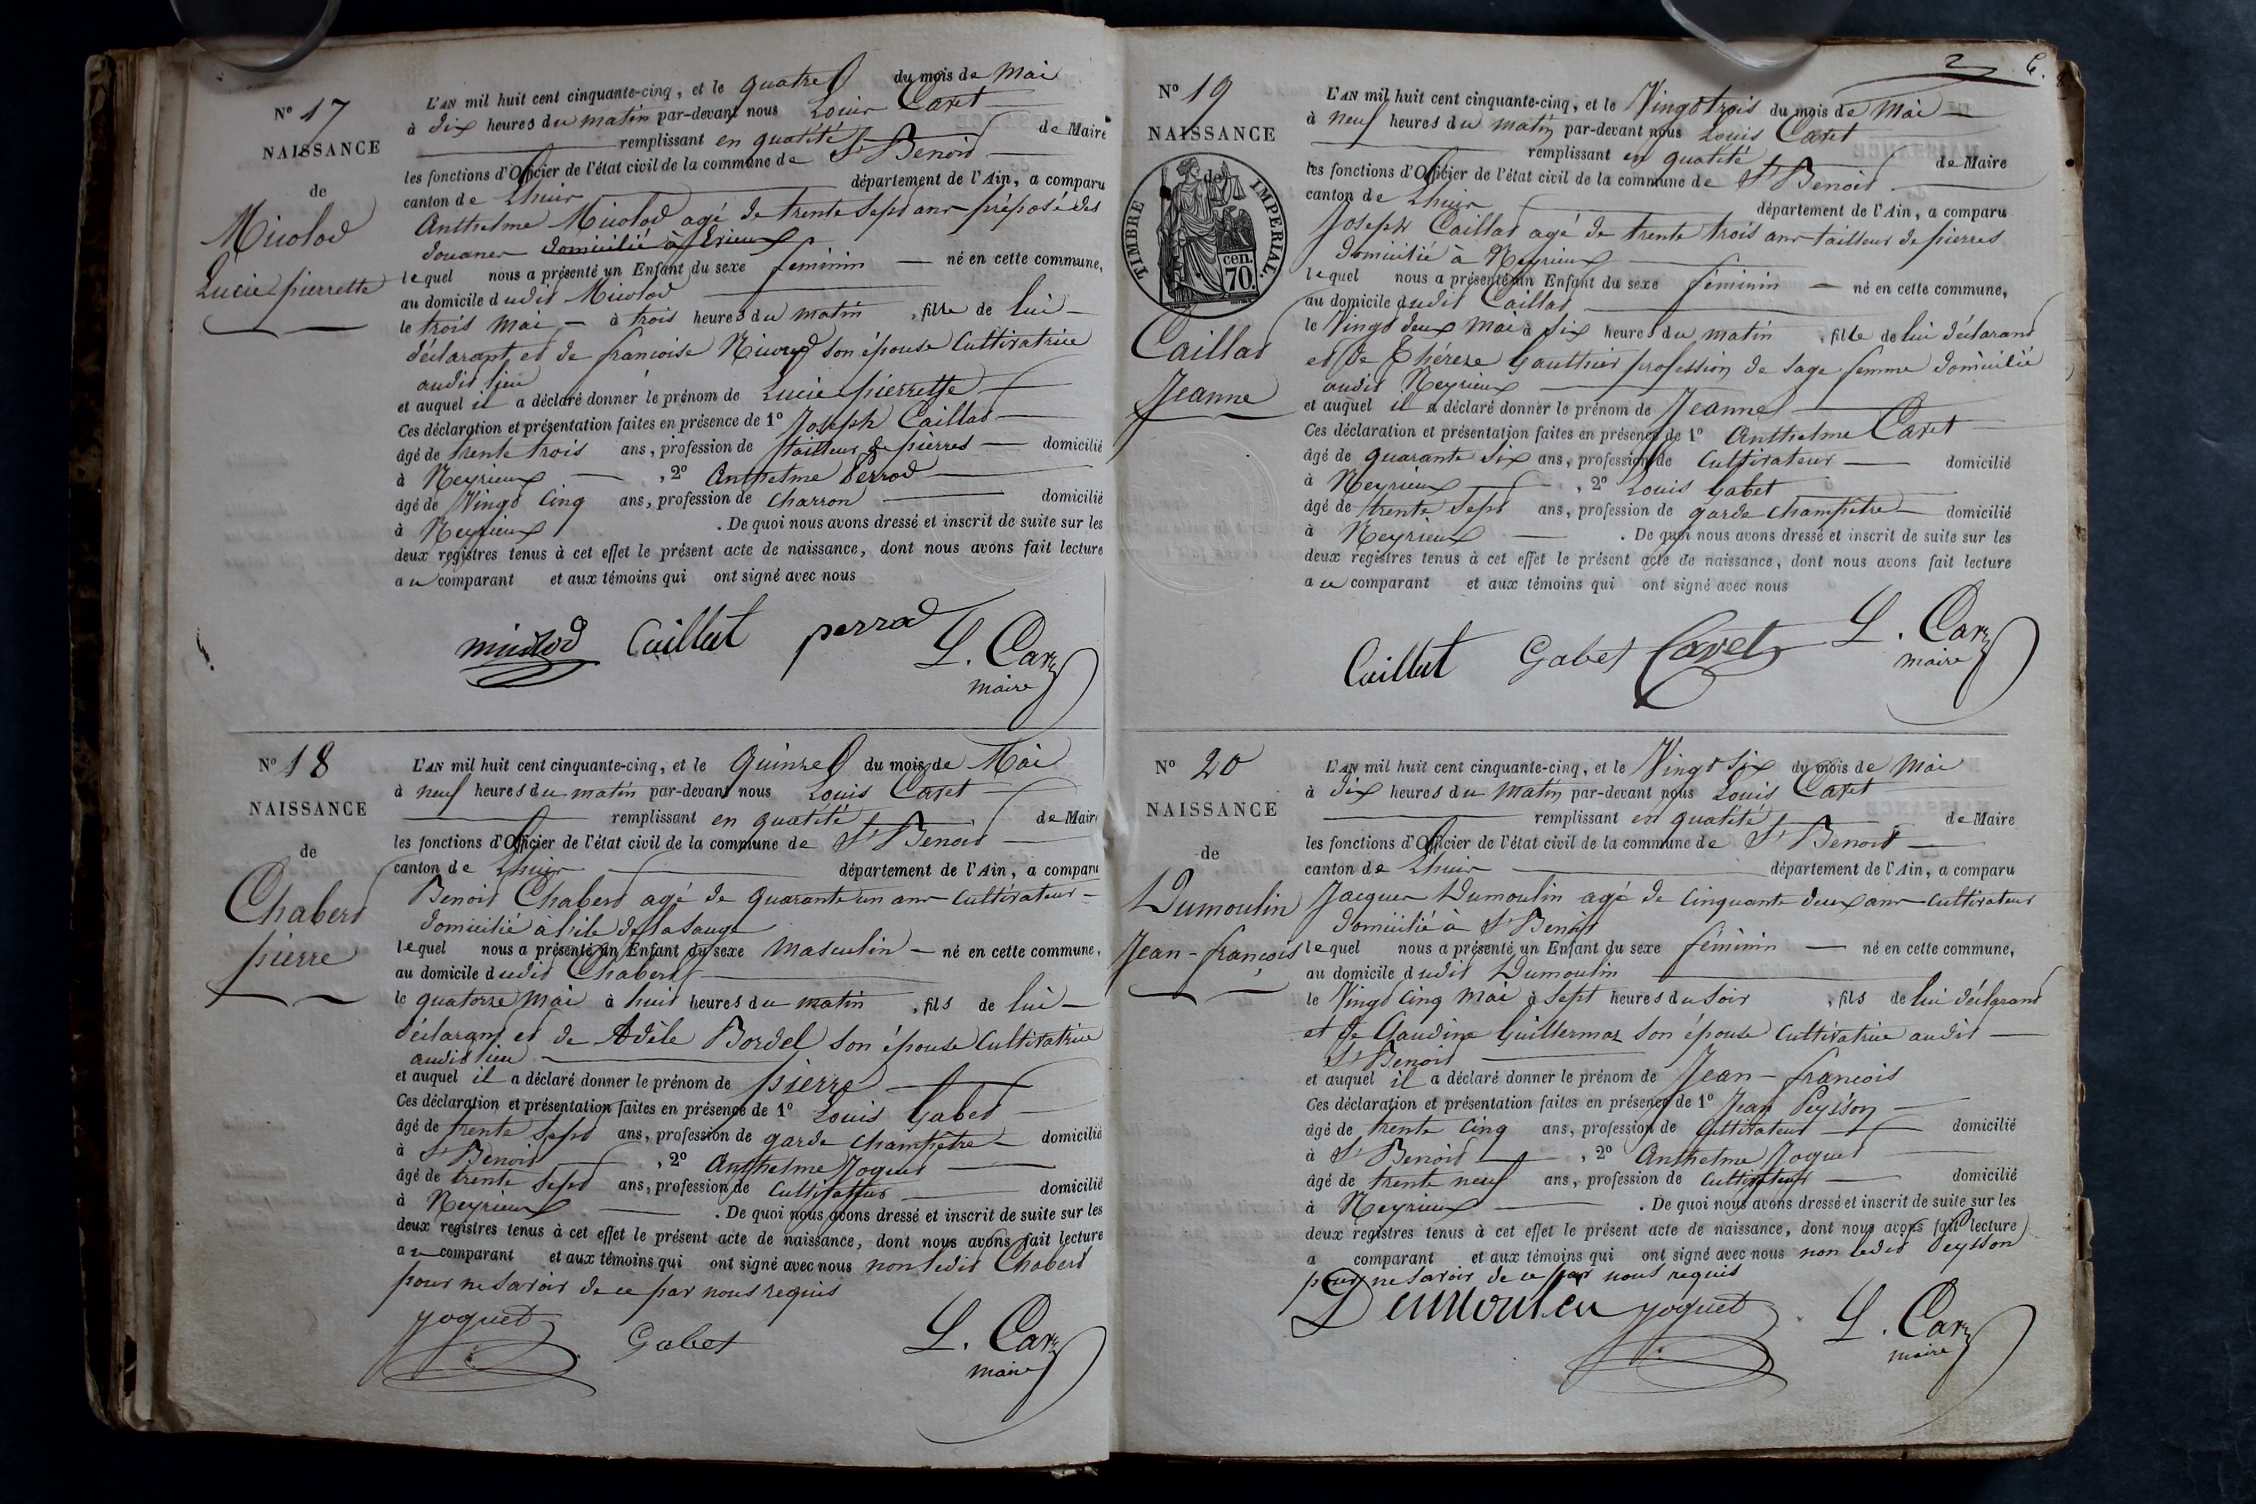 Nº 17
NAISSANCE
de
Micolod
Lucie pierrette
L'AN mil huit cent cinquante-cinq, et le quatre du mois de Mai
à dix heures du matin par-devant nous Louis Caret
remplissant en qualité de Maire
les fonctions d'Officier de l'état civil de la commune de St Benoit
canton de Lhuis département de l'Ain, a comparu
Anthelme Micolod agé de trente sept ans préposé des
douanes domicilié à
lequel nous a présenté un Enfant du sexe feminin né en cette commune,
au domicile dudit Micolod
le trois Mai à trois heures du matin, fille de lui
déclarant et de francoise son épouse Cultivatrice
audit lieu
et auquel il a déclaré donner le prénom de Lucie pierrette
Ces déclaration et présentation faites en présence de 1º Joseph Caillat
âgé de trente trois ans, profession de tailleur de pierres domicilié
à Neyrieux, 2º Anthelme Perrod
âgé de Vingt Cinq ans, profession de charron domicilié
à Neyrieux. De quoi nous avons dressé et inscrit de suite sur les
deux registres tenus à cet effet le présent acte de naissance, dont nous avons fait lecture
au comparant et aux témoins qui ont signé avec nous
micolod Caillat perrod L. Caret
maire
Nº 18
NAISSANCE
de
Chabert
pierre
L'AN mil huit cent cinquante-cinq, et le Quinze du mois de Mai
à neuf heures du matin par-devant nous Louis Caret
remplissant en qualité de Maire
les fonctions d'Officier de l'état civil de la commune de St Benoit
canton de Lhuis département de l'Ain, a comparu
Benoit Chabert agé de quarante un ans cultivateur
domicilié à l'ile de la Sauge
lequel nous a présenté un Enfant du sexe Masculin né en cette commune,
au domicile dudit Chabert
le quatorze Mai à huit heures du matin, fils de lui
déclarant et de Adèle Bordel son épouse Cultivatrice
audit lieu
et auquel il a déclaré donner le prénom de pierre
Ces déclaration et présentation faites en présence de 1º Louis Gabet
âgé de trente sept ans, profession de garde champêtre domicilié
à St Benoit, 2º Anthelme Joguet
âgé de trente sept ans, profession de Cultivateur domicilié
à Neyrieux. De quoi nous avons dressé et inscrit de suite sur les
deux registres tenus à cet effet le présent acte de naissance, dont nous avons fait lecture
au comparant et aux témoins qui ont signé avec nous non ledit Chabert
pour ne savoir de ce par nous requis
joguet Gabet L. Caret
maire
Nº 19
NAISSANCE
de
TIMBRE IMPERIAL.
70. cen.
Caillat
Jeanne
L'AN mil huit cent cinquante-cinq, et le Vingt trois du mois de Mai
à neuf heures du matin par-devant nous Louis Caret
remplissant en qualité de Maire
les fonctions d'Officier de l'état civil de la commune de St Benoit
canton de Lhuis département de l'Ain, a comparu
Joseph Caillat agé de trente trois ans tailleur de pierres
domicilié à Neyrieux
lequel nous a présenté un Enfant du sexe féminin né en cette commune,
au domicile dudit Caillat
le Vingt deux Mai à Six heures du matin, fille de lui déclarant
et de Thérese Gauthier profession de sage femme domicilié
audit Neyrieux
et auquel il a déclaré donner le prénom de Jeanne
Ces déclaration et présentation faites en présence de 1º Anthelme Caret
âgé de quarante Six ans, profession de Cultivateur domicilié
à Neyrieux, 2º Louis Gabet
âgé de trente Sept ans, profession de garde champêtre domicilié
à Neyrieux. De quoi nous avons dressé et inscrit de suite sur les
deux registres tenus à cet effet le présent acte de naissance, dont nous avons fait lecture
au comparant et aux témoins qui ont signé avec nous
Caillat Gabet Caret L. Caret
maire
Nº 20
NAISSANCE
de
Dumoulin
Jean-françois
L'AN mil huit cent cinquante-cinq, et le Vingt Six du mois de Mai
à dix heures du Matin par-devant nous Louis Caret
remplissant en qualité de Maire
les fonctions d'Officier de l'état civil de la commune de St Benoit
canton de Lhuis département de l'Ain, a comparu
Jacques Dumoulin agé de cinquante deux ans cultivateur
domicilié à St Benoit
lequel nous a présenté un Enfant du sexe féminin né en cette commune,
au domicile dudit Dumoulin
le Vingt Cinq Mai à Sept heures du soir, fils de lui déclarant
et de Claudine Guillermaz son épouse Cultivatrice audit
St Benoit
et auquel il a déclaré donner le prénom de Jean-francois
Ces déclaration et présentation faites en présence de 1º Jean Peysson
âgé de trente Cinq ans, profession de Cultivateur domicilié
à St Benoit, 2º Anthelme Joguet
âgé de trente neuf ans, profession de Cultivateur domicilié
à Neyrieux. De quoi nous avons dressé et inscrit de suite sur les
deux registres tenus à cet effet le présent acte de naissance, dont nous avons fait lecture
a comparant et aux témoins qui ont signé avec nous non ledit Peysson
pour ne savoir de ce par nous requis
Dumoulin joguet L. Caret
maire